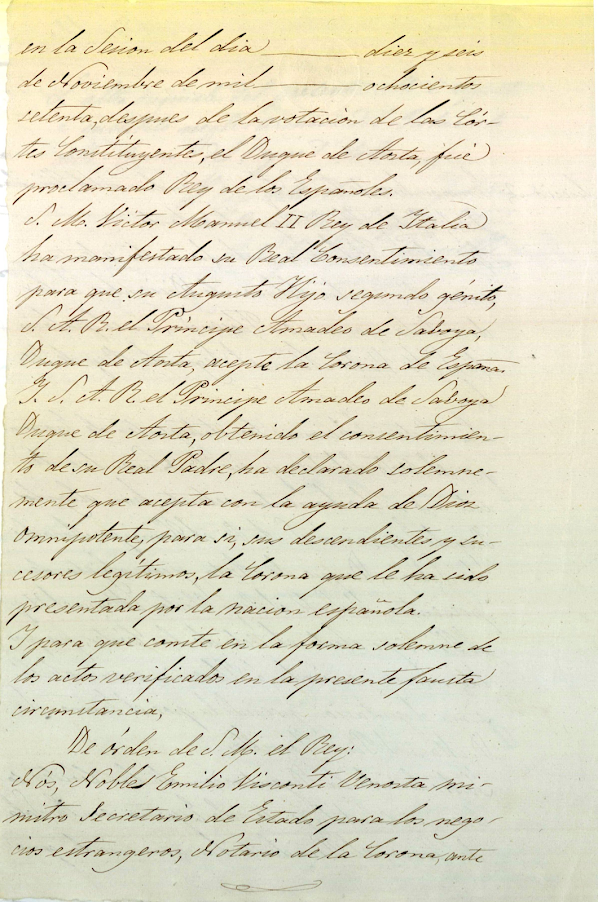 en la Sesion del dia ——— diez y seis
de Noviembre de mil ——— ochocientos
setenta, despues de la votacion de las Cór-
tes Constituyentes, el Duque de Aosta, fué
proclamado Rey de los Españoles.
S. M. Victor Manuel II Rey de Italia
ha manifestado su Real Consentimiento
para que su Augusto Hijo segundo génito,
S. A. R. el Príncipe Amadeo de Saboya,
Duque de Aosta, acepte la Corona de España.
Y S. A. R. el Principe Amadeo de Saboya
Duque de Aosta, obtenido el consentimien-
to de su Real Padre, ha declarado solemne-
mente que acepta con la ayuda de Dios
Omnipotente, para si, sus descendientes y su-
cesores legítimos, la Corona que le ha sido
presentada por la nacion española.
Y para que conste en la forma solemne de
los actos verificados en la presente fausta
circunstancia,
De órden de S. M. el Rey:
Nós, Nobles Emilio Visconti Venosta mi-
nistro Secretario de Estado para los nego-
cios estrangeros, Notario de la Corona, ante